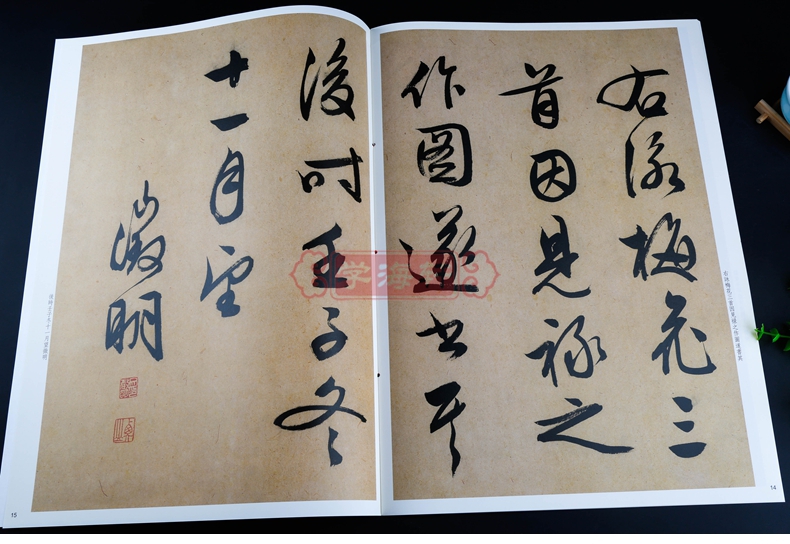 右詠梅花三
首因見祿之
作圖遂書其
後時壬子冬
十一月望
徵明
右詠梅花三首因見祿之作圖遂書其
後時壬子冬十一月望徵明
14
15